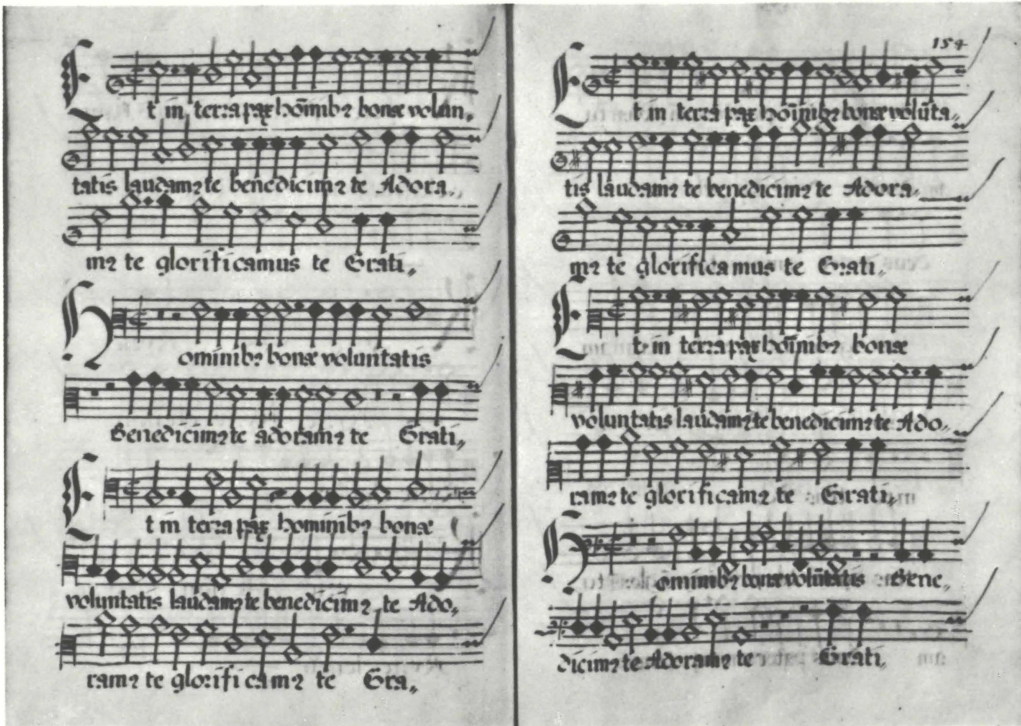 Et in terra pax hoĩnibꝰ bonæ volun„
tatis laudamꝰ te benedicimꝰ te Adora„
mꝰ te glorificamus te Grati„
Hominibꝰ bonæ voluntatis
Benedicimꝰ te adoramꝰ te Grati„
Et in terra pax hominibꝰ bonæ
voluntatis laudamꝰ te benedicimꝰ te Ado„
ramꝰ te glorificamꝰ te Gra„
154
Et in terra pax hoĩnibꝰ bonæ volũta„
tis laudamꝰ te benedicimꝰ te Adora„
mꝰ te glorificamus te Grati„
Et in terra pax hoĩnibꝰ bonæ
voluntatis laudamꝰ te benedicimꝰ te Ado„
ramꝰ te glorificamꝰ te Grati„
Hominibꝰ bonæ volũtatis Bene„
dicimꝰ te Adoramꝰ te Grati„